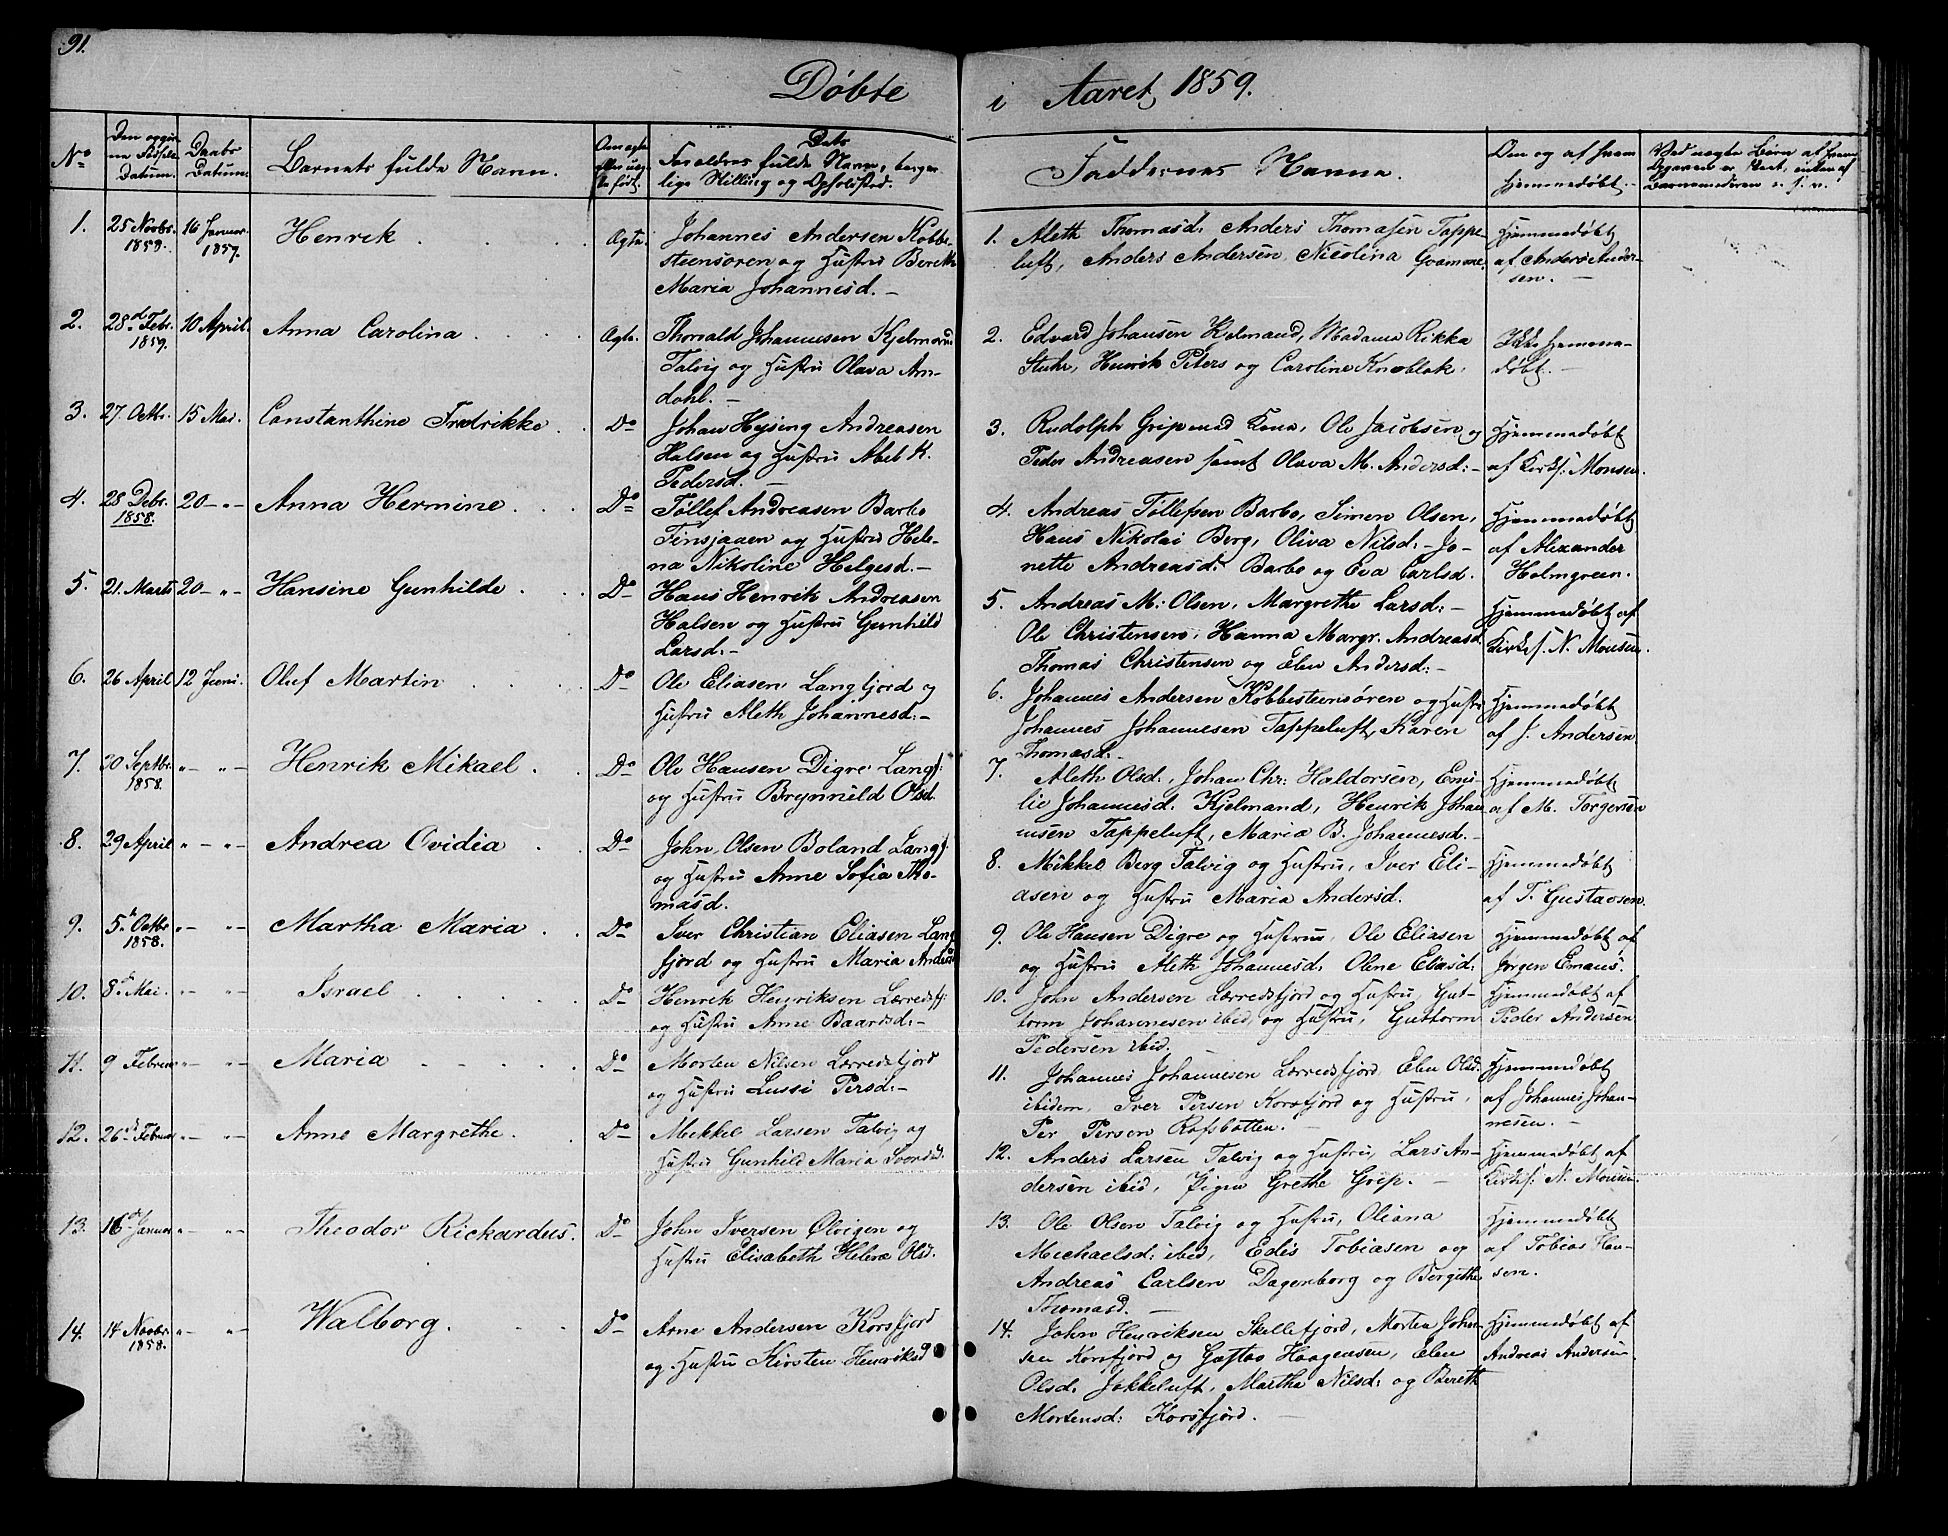 91.
Døbte i Aaret 1859.
No
Datum.
Daabs Datum.
Barnets fulde Navn.
Faddernes Navne.
Om og af hvem hjemmedøbt.
1. 25 Novbr. 1858. 16 Januar 1859. Henrik Ægte.
Johannes Andersen Kobbe-
steensøren og Hustru Bereth
Maria Johannesd. –
1. Aleth Thomasd: Anders Thomasen Tappe-
luft, Anders Andersen, Nicolina
Hjemmedøbt
af Anders Ander-
sen. –
2. 28de Febr. 1859. 10 April. Anna Carolina Ægte.
Thorvald Johannesen Kjelmand
Talvig og Hustru Olava An-
dahl. –
2. Edvard Johansen Kjelmand, Madame Rikka
Stuhr, Henrik Peters og Caroline Knoblok.
Ikke hjemme-
døbt. –
3. 27. Octbr. 15 Mai. Constanthine Fredrikke Do
Johan Hysing Andreasen
Halsen og Hustru Abel K.
Pedersd. –
3. Rudolph Grip med Kone, Ole Jacobsen og
Peder Andreasen samt Olava M. Andersd: –
Hjemmedøbt
af Kirks. Monsen.
4. 28 Debr. 1858. 20 – „ – Anna Hermine Do
Tøllef Andreasen Barbo
Finsjaaen og Hustru Hele-
na Nikoline Helgesd. –
4. Andreas Tøllefsen Barbo, Simon Olsen,
Hans Nikolai Berg, Oliva Nilsd: – Jo-
nette Andreasd: Barbo og Eva Carlsd.
Hjemmedøbt
af Alexander
Holmgreen.
5. 21. Marts 20 – „ – Hansine Gunhilde Do
Hans Henrik Andreasen
Halsen og Hustru Gunhild
Larsd: –
5. Andreas M: Olsen, Margrethe Larsd: –
Ole Christensen, Hanna Margr. Andreasd.
Thomas Christensen og Elen Andersd: –
Hjemmedøbt af
Kirks. N. Monsen.
6. 26 April 12 Juni. Oluf Martin Do
Ole Eliasen Langfjord og
Hustru Aleth Johannesd: –
6. Johannes Andersen Kobbesteensøren og Hustru
Johannes Johannesen Tappeluft, Karen
Thomasd: –
Hjemmedøbt
af J. Andersen.
7. 30 Septbr. 1858. „ – „ – Henrik Mikael Do
Ole Hansen Digre Langf:
og Hustru Brynnild Olsd.
7. Aleth Olsd., Johan Chr: Haldorsen, Emi-
lie Johannesd: Kjelmand, Henrik Johan
nesen Tappeluft, Maria B. Johannesd. –
Hjemmedøbt
af M. Torgersen
8. 29 April „ – „ – Andrea Ovidia Do
John Olsen Boland Langf:
og Hustru Anne Sofia Tho-
masd.
8. Mikkel Berg Talvig og Hustru, Iver Eli-
asen og Hustru Maria Andersd.
Hjemmedøbt
af T. Gustavsen.
9. 5 Octbr. 1858. „ – „ – Martha Maria Do
Iver Christian Eliasen Lang
fjord og Hustru Maria Andersd
9. Ole Hansen Digre og Hustru, Ole Eliasen
og Hustru Aleth Johannesd: Olene Eliasd:
Hjemmedøbt af
Jørgen Emaus.
10. 8de Mai. „ – „ – Israel Do
Henrik Henriksen Lerredsfj:
og Hustru Anne Baardsd: –
10. John Andersen Lerredsfjord og Hustru, Gut-
torm Johannesen ibid, og Hustru, Guttorm
Pedersen ibid.
Hjemmedøbt af
Peder Andersen
11. 9 Februar „ – „ – Maria Do
Morten Nilsen Lerredsfjord
og Hustru Lussi Persd: –
11. Johannes Johannesen Lerredsfjord, Elen Olsd:
ibidem, Iver Persen Korsfjord og Hustru,
Per Persen Rafsbotten. –
Hjemmedøbt
af Johannes Johan-
nesen. –
12. 26de Februar „ – „ – Anne Margrethe. Do
Mikkel Larsen Talvig og
Hustru Gunhild Maria
12. Anders Larsen Talvig og Hustru, Lars An-
dersen ibid, Pigen Grethe Grip. –
Hjemmedøbt af
Kirks. N. Monsen.
13. 16de Januar „ – „ – Theodor Rickardus. Do
John Iversen Øvigen og
Hustru Elisabeth Helene Olsd.
13. Ole Olsen Talvig og Hustru, Oliana
Michaelsd: ibid, Edis Tobiasen og
Andreas Carlsen Dagenborg og Bergithe
Thomasd. –
Hjemmedøbt
af Tobias Han-
sen.
14. 14. Novbr. 1858. „ – „ – Walborg. Do
Arne Andersen Korsfjord
og Hustru Kirsten Henriksd
14. John Henriksen Skillefjord, Morten Johan-
sen Korsfjord og Gustav Haagensen, Elen
Olsd. Jokkeluft, Martha Nilsd: og Bereth
Mortensd: Korsfjord. –
Hjemmedøbt af
Andreas Andersen.